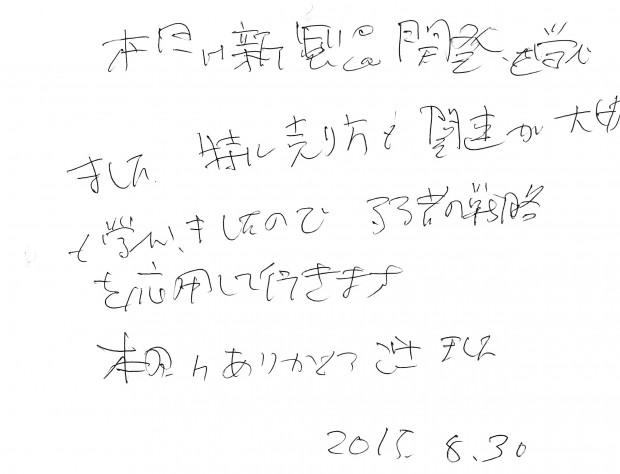 本日は新製品開発を学び
ました 特に売り方と関連が大切
と学びましたので 弱者の戦略
を応用して行きます
本日はありがとうございました
2015. 8.30